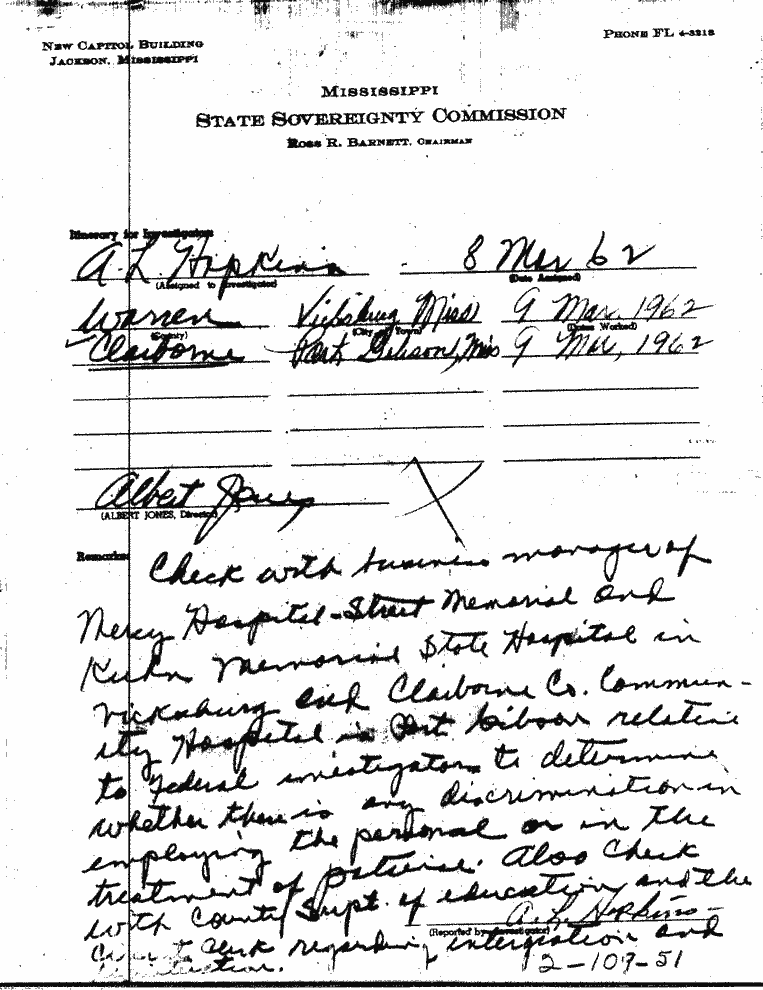 NEW CAPITOL BUILDING
JACKSON, MISSISSIPPI
PHONE FL 4-3218
MISSISSIPPI
STATE SOVEREIGNTY COMMISSION
ROSS R. BARNETT, CHAIRMAN
Itinerary for Investigators
A. L. Hopkins 8 Mar 62
(Assigned to Investigator) (Date Assigned)
Warren Vicksburg Miss 9 Mar. 1962
(County) (City or Town) (Dates Worked)
Claiborne Port Gibson, Miss 9 Mar, 1962
Albert Jones
(ALBERT JONES, Director)
Remarks Check with business manager of
Mercy Hospital-Street Memorial and
Kuhn Memorial State Hospital in
Vicksburg and Claiborne Co. Commun-
ity Hospital in Port Gibson relative
to Federal investigators to determine
whether there is any discrimination in
employing the personal or in the
treatment of patients. Also check
with County Supt. of education and the
A. L. Hopkins
(Reported by Investigator)
Clerk regarding intergration and
2-109-51